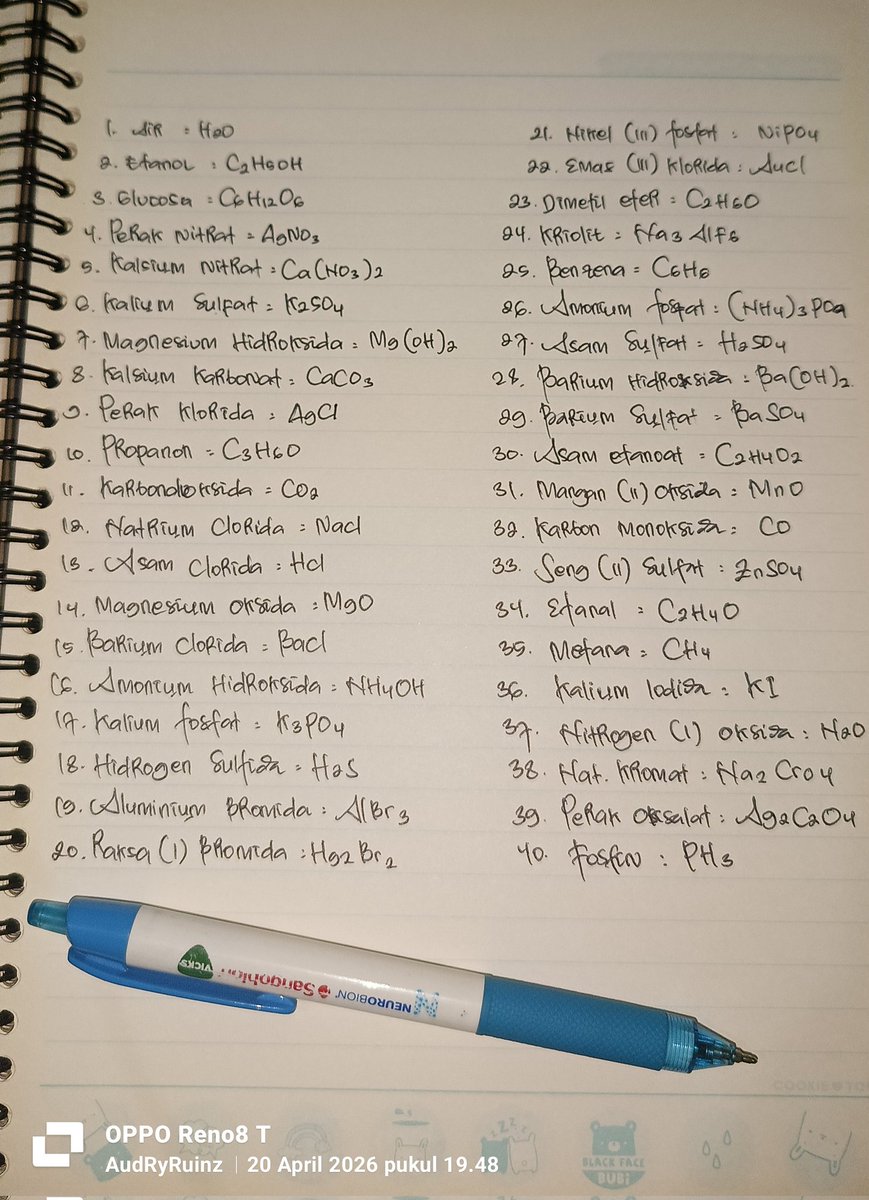 1. Air : H2O
2. Etanol : C2H5OH
3. Glucosa = C6H12O6
4. Perak Nitrat = AgNO3
5. Kalsium Nitrat = Ca(NO3)2
6. Kalium Sulfat = K2SO4
7. Magnesium Hidroksida = Mg(OH)2
8. Kalsium Karbonat = CaCO3
9. Perak Klorida : AgCl
10. Propanon = C3H6O
11. Karbondioksida = CO2
12. Natrium Clorida : Nacl
13. Asam Clorida : Hcl
14. Magnesium Oksida : MgO
15. Barium Clorida : Bacl
16. Amonium Hidroksida = NH4OH
17. Kalium fosfat = K3PO4
18. Hidrogen Sulfida = H2S
19. Aluminium Bromida : AlBr3
20. Raksa (I) Bromida : Hg2Br2
21. Nikel (III) fosfat : NiPO4
22. Emas (III) Klorida : Aucl
23. Dimetil eter = C2H6O
24. Kriolit = Na3 AlF6
25. Benzena = C6H6
26. Amonium fosfat : (NH4)3PO4
27. Asam Sulfat = H2SO4
28. Barium Hidroksida : Ba(OH)2
29. Barium Sulfat = BaSO4
30. Asam etanoat = C2H4O2
31. Mangan (II) Oksida = MnO
32. Karbon Monoksida : CO
33. Seng (II) Sulfat : ZnSO4
34. Etanal : C2H4O
35. Metana = CH4
36. Kalium Iodida : KI
37. Nitrogen (I) oksida : N2O
38. Nat. Kromat : Na2 CrO4
39. Perak Oksalat : Ag2C2O4
40. Fosfin : PH3
VICKS
Sangobion
NEUROBION
BLACK FACE
BUBI
OPPO Reno8 T
AudRyRuinz | 20 April 2026 pukul 19.48